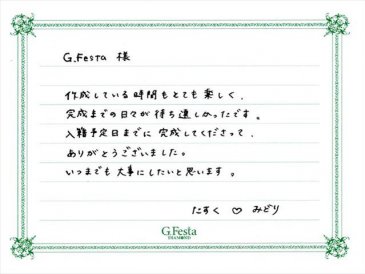 G.Festa 様
作成している時間もとても楽しく、
完成までの日々が待ち遠しかったです。
入籍予定日までに完成してくださって、
ありがとうございました。
いつまでも大事にしたいと思います。
たすく ♡ みどり
G.Festa
DIAMOND